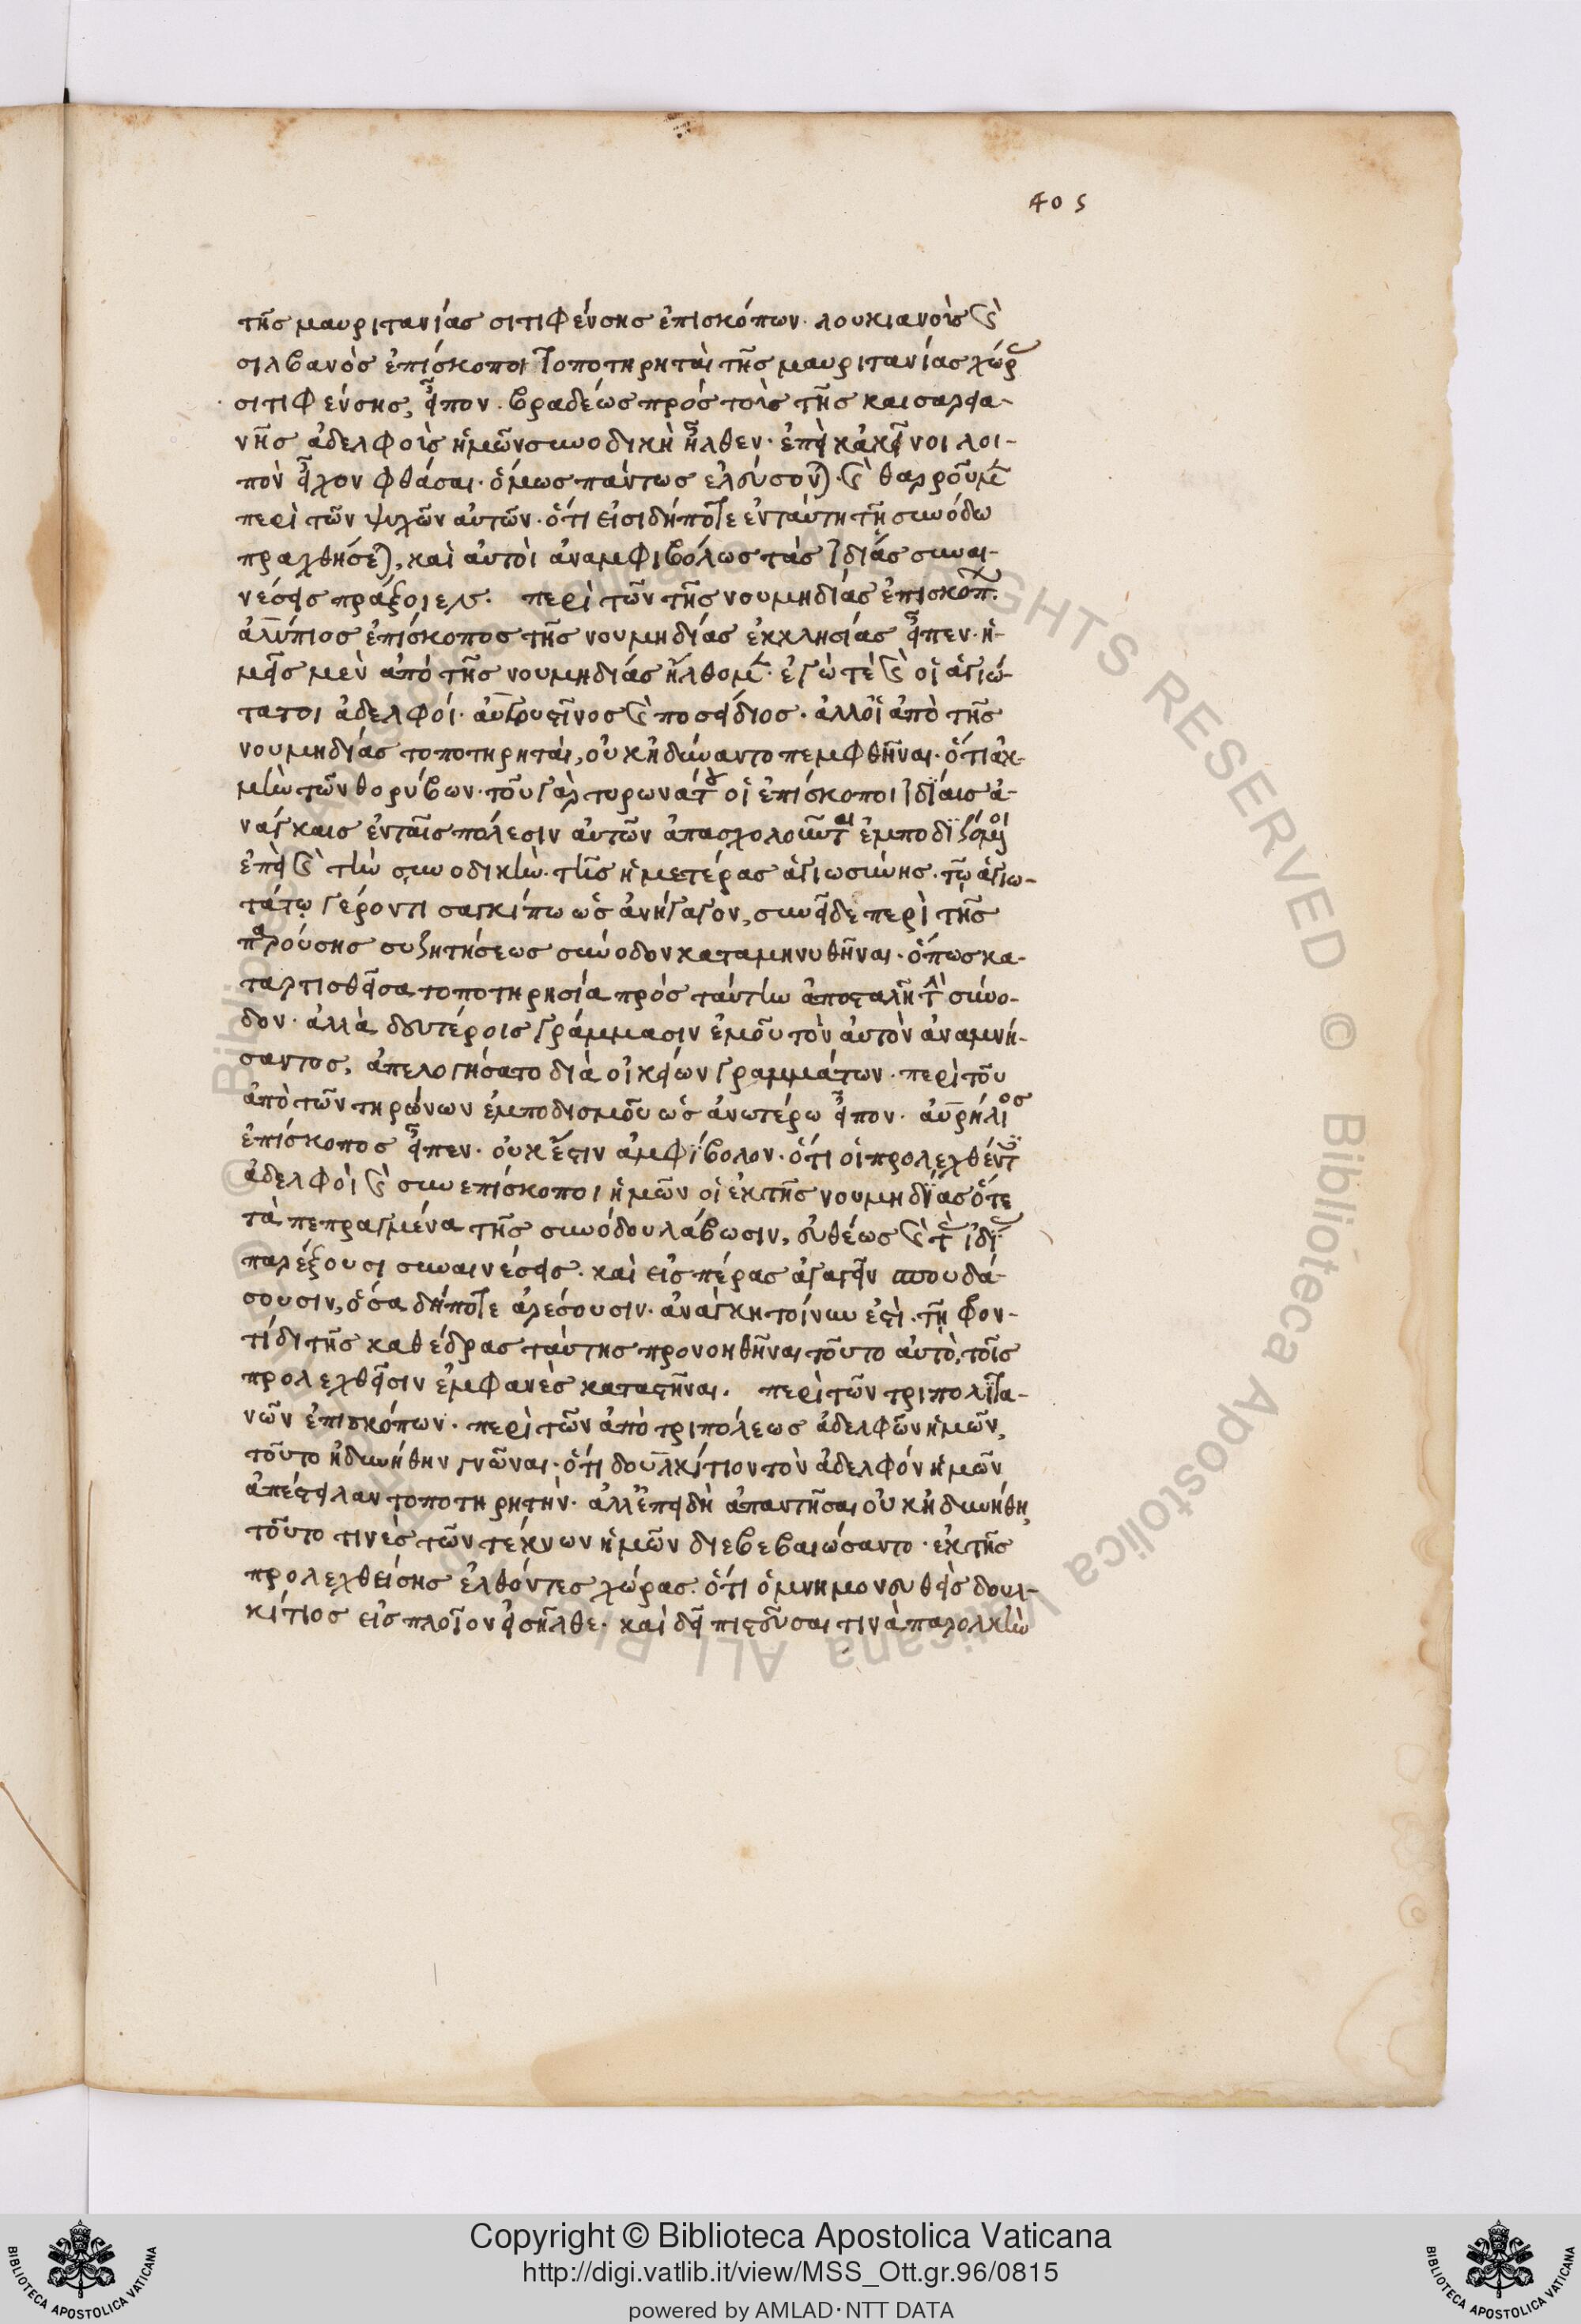 405
τῆς μαυριτανίας σιτιφένσης ἐπισκόπων· λουκιανοὶς καὶ
σιλβανὸς ἐπίσκοποι τοποτηρηταὶ τῆς μαυριτανίας χώρ
σιτιφένσης, εἶπον· βραδέως πρός τοὶς τῆς καισαρεα-
νῆς ἀδελφοὶς ἡμῶν συνοδικὴ ἦλθεν· ἐπεὶ κἀκεῖνοι λοι-
πὸν εἶχον φθάσαι· ὅμως πάντως ἐλεύσονται· καὶ θαρροῦμεν
περὶ τῶν ψυχῶν αὐτῶν· ὅτι εἰσιδήποτε ἐνταύτη τῇ συνόδω
πραχθήσεται, καὶ αὐτοὶ ἀναμφιβόλως τὰς ἰδιάς συναι-
νέσεις πράξοιεν. περὶ τῶν τῆς νουμηδίας ἐπισκόπ.
ἀλύπιος ἐπίσκοπος τῆς νουμηδίας ἐκκλησίας εἶπεν· ἡ-
μεῖς μεν ἀπὸ τῆς νουμηδιάς ἤλθομεν· ἐγώ τὲ καὶ οἱ ἁγιώ-
τατοι ἀδελφοί· αὐγουστῖνος καὶ ποσείδιος· ἀλλοἱ ἀπὸ τῆς
νουμηδίάς τοποτηρηταὶ, οὐκ ἠδύναντο πεμφθῆναι· ὅτι ἀκ-
μὴν τῶν θορύβων· τοῦ γὰρ τυρωνάτου οἱ ἐπίσκοποι ἰδίαις ἀ-
νάγκαις ἐνταῖς πόλεσιν αὐτῶν ἀπασχολοῦνται ἐμποδιζόμενοι
ἐπεὶ καὶ τὴν συνοδικὴν· τῆς ἡμετέρας ἁγιωσύνης· τῷ ἁγιω-
τάτῳ γέροντι σαγκίπω ὡς ἀνήγαγον, συνεῖδε περὶ τῆς
παρούσης συζητήσεως σύνοδον καταμηνυθῆναι· ὅπως κα-
ταρτισθεῖσα τοποτηρησία πρός ταύτην ἀποσταλῆ τὴν σύνο-
δον· ἀλλὰ δευτέροις γράμμασιν ἐμοῦ τὸν αὐτὸν ἀναμνή-
σαντος, ἀπελογήσατο διὰ οἰκείων γραμμάτων· περὶ τοῦ
ἀπὸ τῶν τηρώνων ἐμποδισμοῦ ὡς ἀνωτέρω εἶπον· αὐρήλιος
ἐπίσκοπος εἶπεν· οὐκ ἔστιν ἀμφίβολον· ὅτι οἱ προλεχθέντες
ἀδελφοὶ καὶ συνεπίσκοποι ἡμῶν οἱ ἐκ τῆς νουμηδίας ὅτε
τὰ πεπραγμένα τῆς συνόδου λάβωσιν, εὐθέως καὶ τὰς ἰδίας
παρέξουσι συναινέσεις· καὶ εἰς πέρας ἀγαγεῖν σπουδά-
σουσιν, ὅσα δήποτε ἀρέσουσιν· ἀνάγκη τοίνυν ἐστὶ· τῇ φρον-
τίδι τῆς καθέδρας ταύτης προνοηθῆναι τοῦτο αὐτὸ, τοῖς
προλεχθεῖσιν ἐμφανὲς καταστῆναι. περὶ τῶν τριπολιτα-
νῶν ἐπισκόπων· περὶ τῶν ἀπὸ τριπόλεως ἀδελφῶν ἡμῶν,
τοῦτο ἠδυνήθην γνῶναι· ὅτι δουλκίτιον τὸν ἀδελφόν ἡμῶν
ἀπέστειλαν τοποτηρητὴν· ἀλλ' ἐπειδὴ ἀπαντῆσαι οὐκ ἠδυνήθη,
τοῦτο τινὲς τῶν τέκνων ἡμῶν διεβεβαιώσαντο· ἐκ τῆς
προλεχθείσης ἐλθόντες χώρας· ὅτι ὁ μνημονευθεὶς δουλ-
κίτιος εἰς πλοῖον εἰσῆλθε· καὶ δεῖ πιστεῦσαι τινὰ παρολκὴν
Copyright © Biblioteca Apostolica Vaticana
http://digi.vatlib.it/view/MSS_Ott.gr.96/0815
powered by AMLAD·NTT DATA